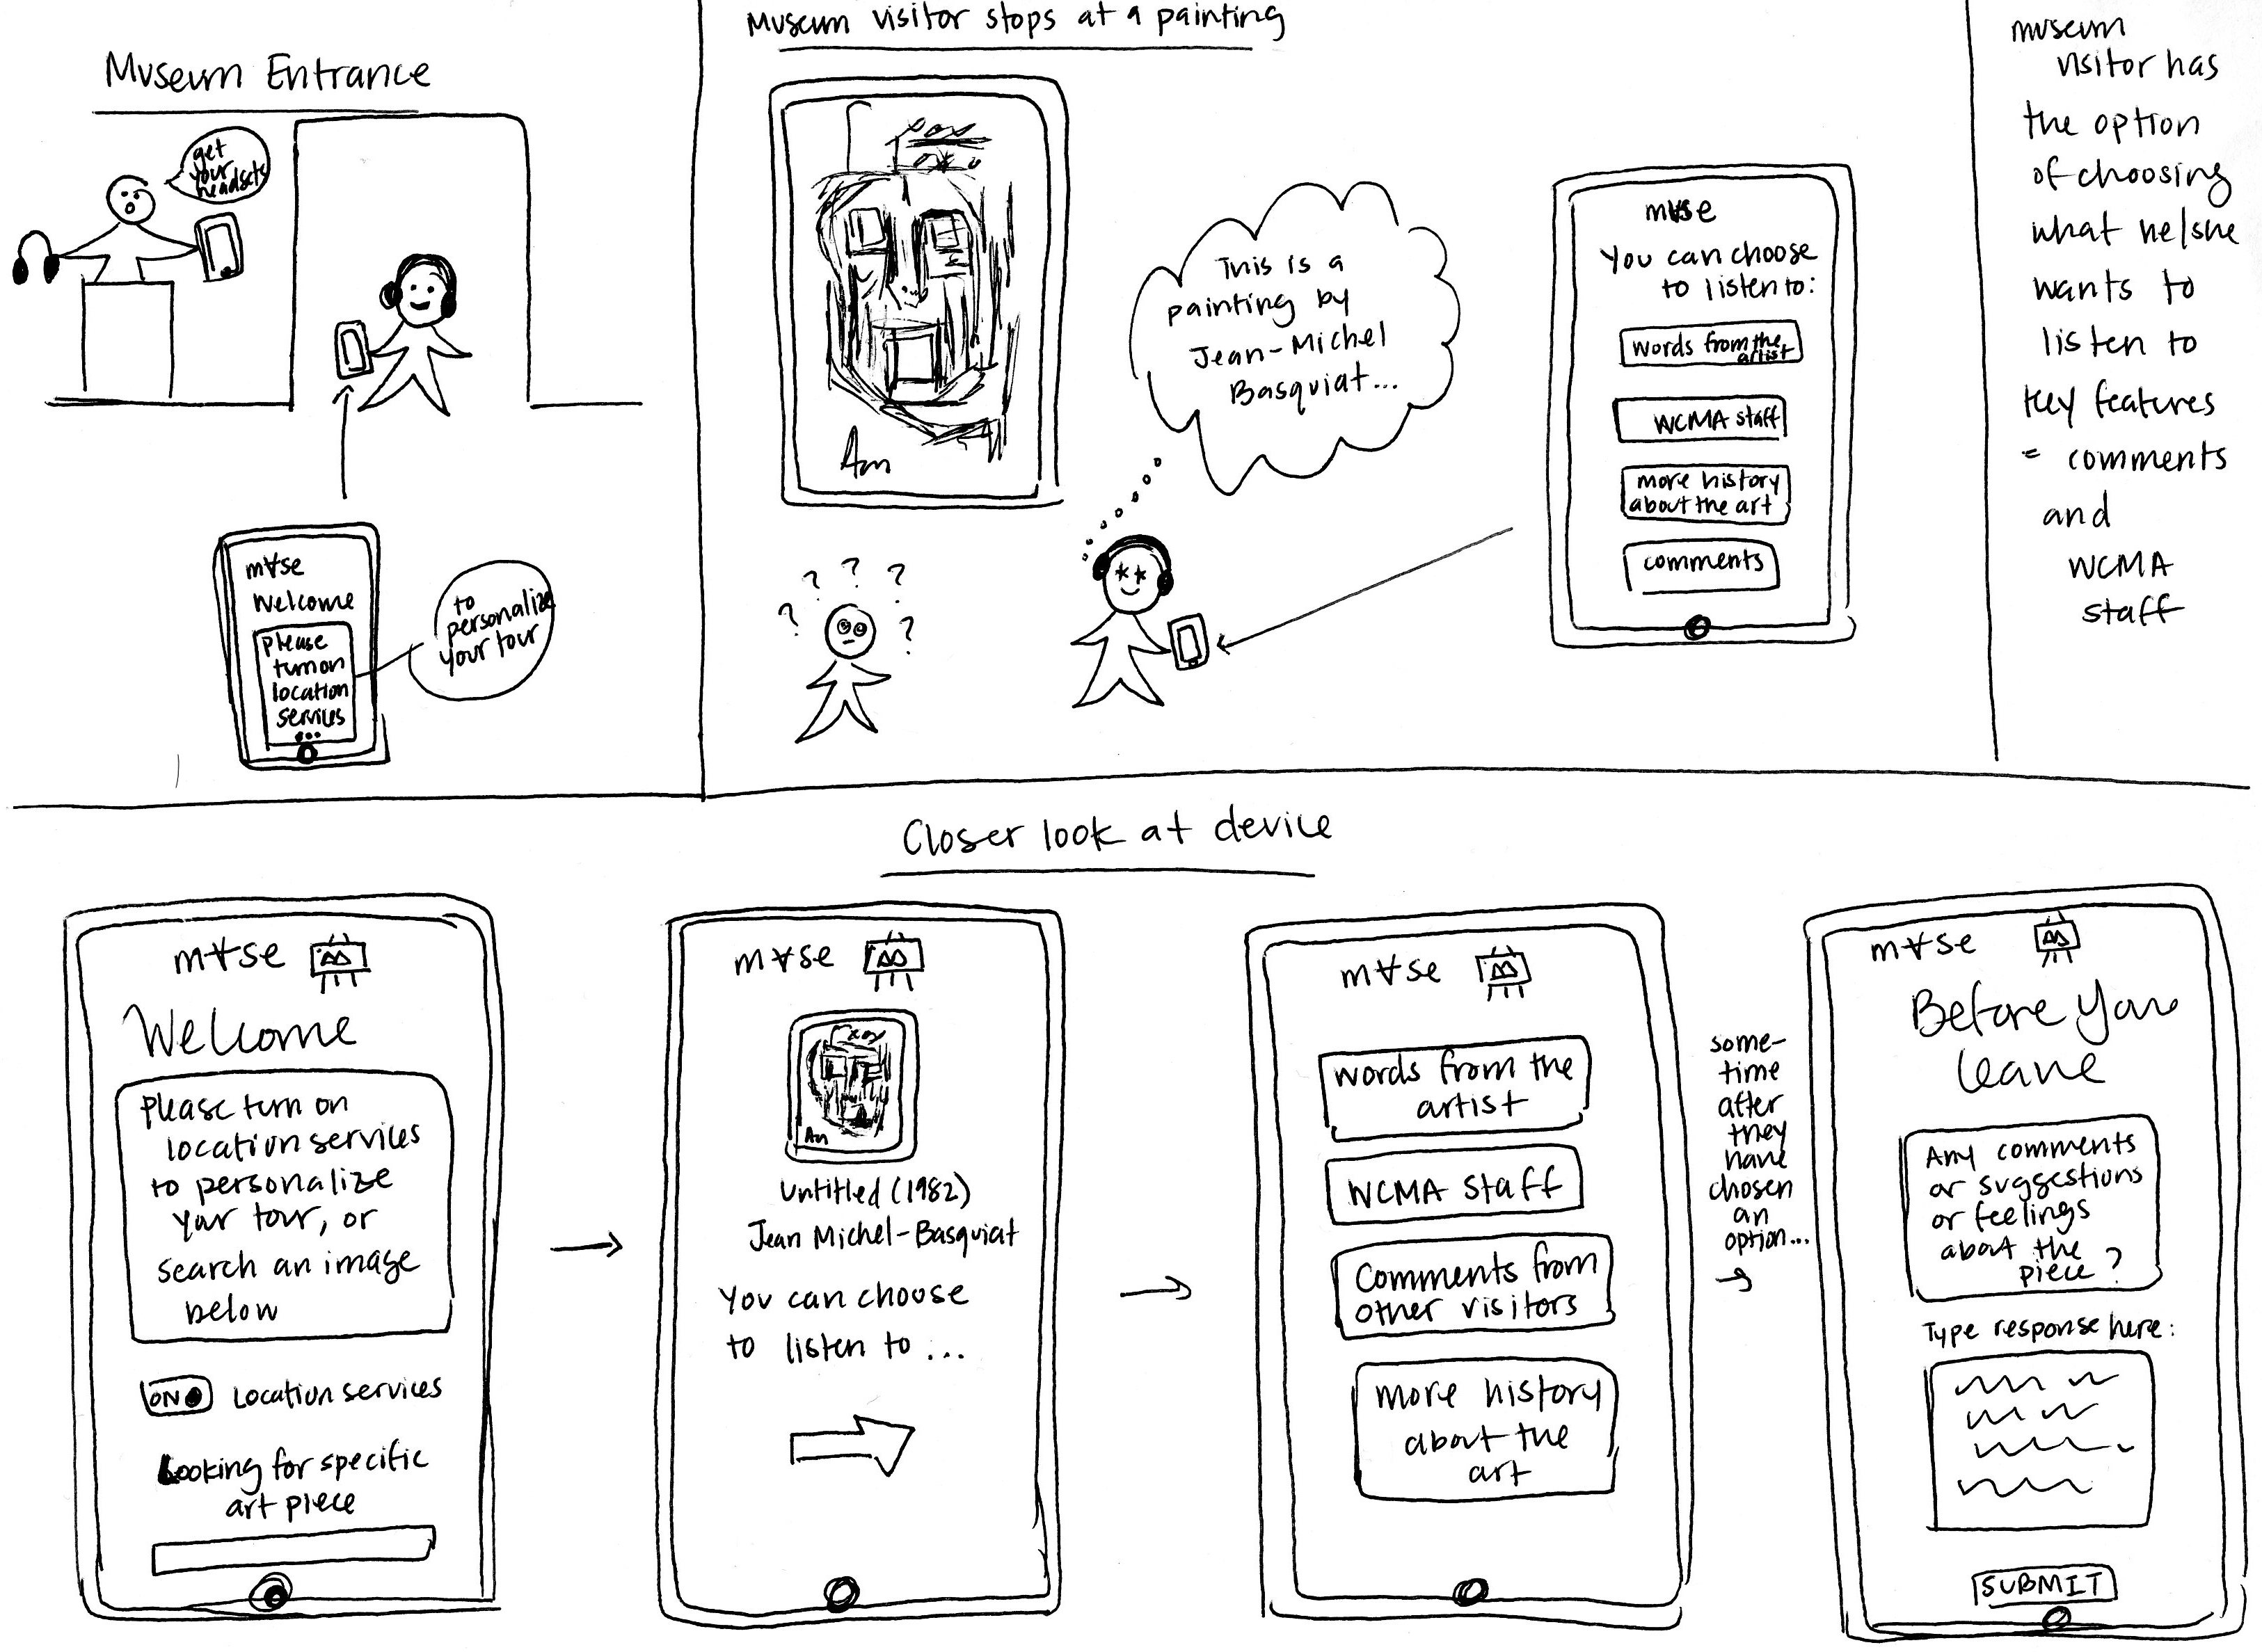 Museum Entrance
get
your
headsets
m∀se
Welcome
please
turn on
location
services
...
to
personalize
your tour
Museum visitor stops at a painting
This is a
painting by
Jean-Michel
Basquiat...
? ? ? ? ?
m∀se
You can choose
to listen to:
words from the
artist
WCMA staff
more history
about the art
comments
museum
visitor has
the option
of choosing
what he/she
wants to
listen to
key features
= comments
and
WCMA
staff
Closer look at device
m∀se
Welcome
please turn on
location services
to personalize
your tour, or
search an image
below
ON
Location services
Looking for specific
art piece
m∀se
Untitled (1982)
Jean Michel-Basquiat
You can choose
to listen to ...
m∀se
words from the
artist
WCMA staff
Comments from
other visitors
more history
about the
art
some-
time
after
they
have
chosen
an
option...
m∀se
Before you
leave
Any comments
or suggestions
or feelings
about the
piece?
Type response here:
SUBMIT